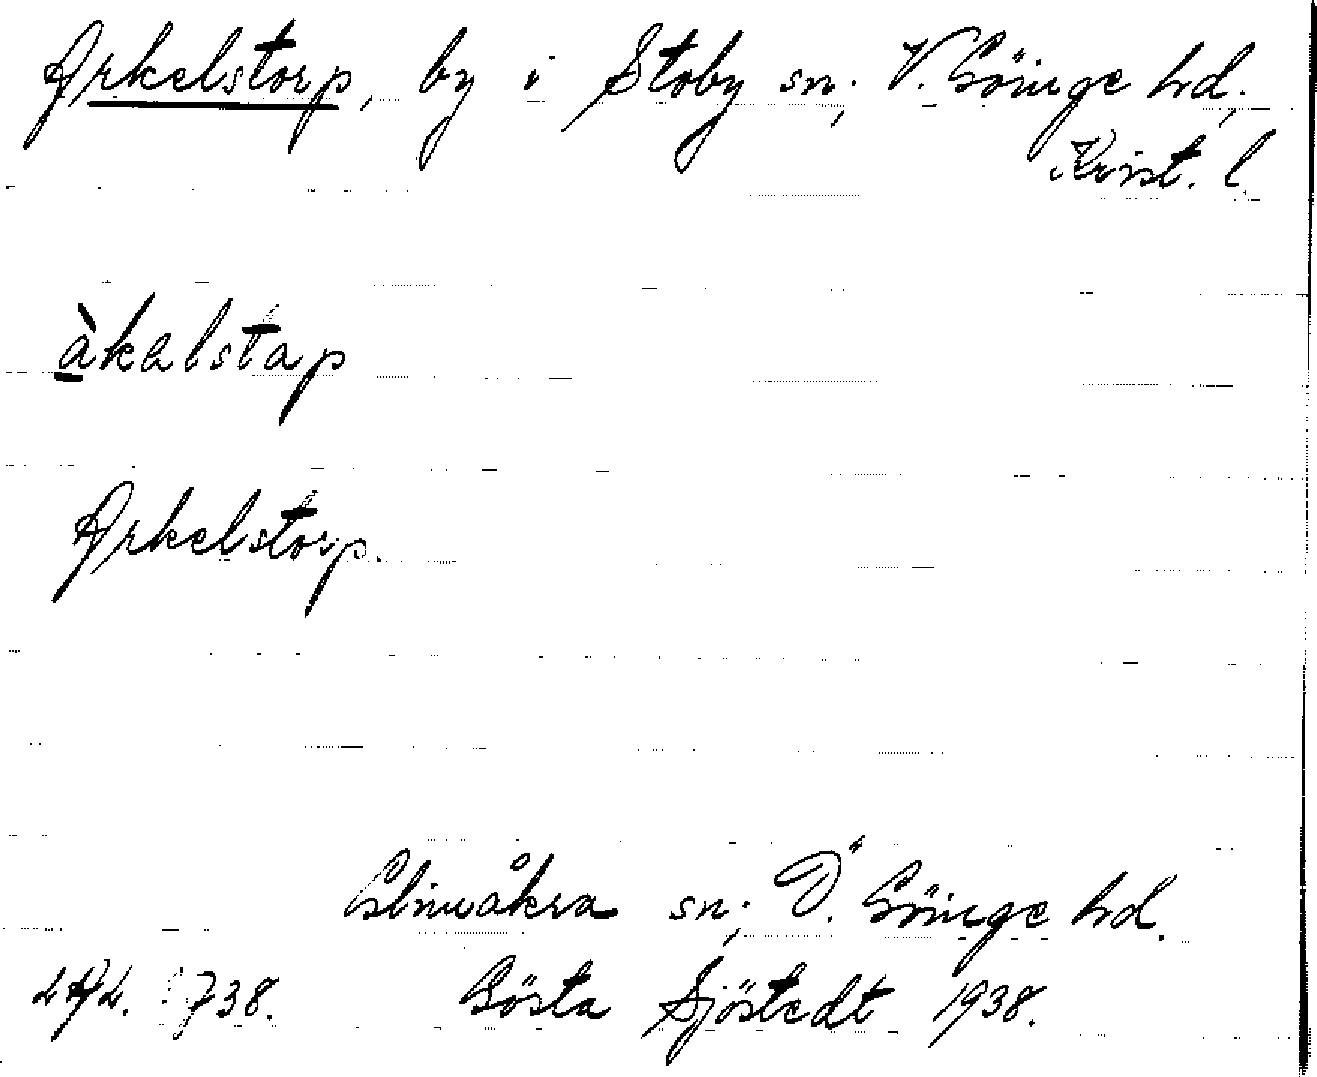 Arkelstorp, by i Stoby sn; V. Göinge hd,
Krist. l.
àkalstap
Arkelstorp.
Glimåkra sn; Ö. Göinge hd.
Gösta Sjöstedt 1938.